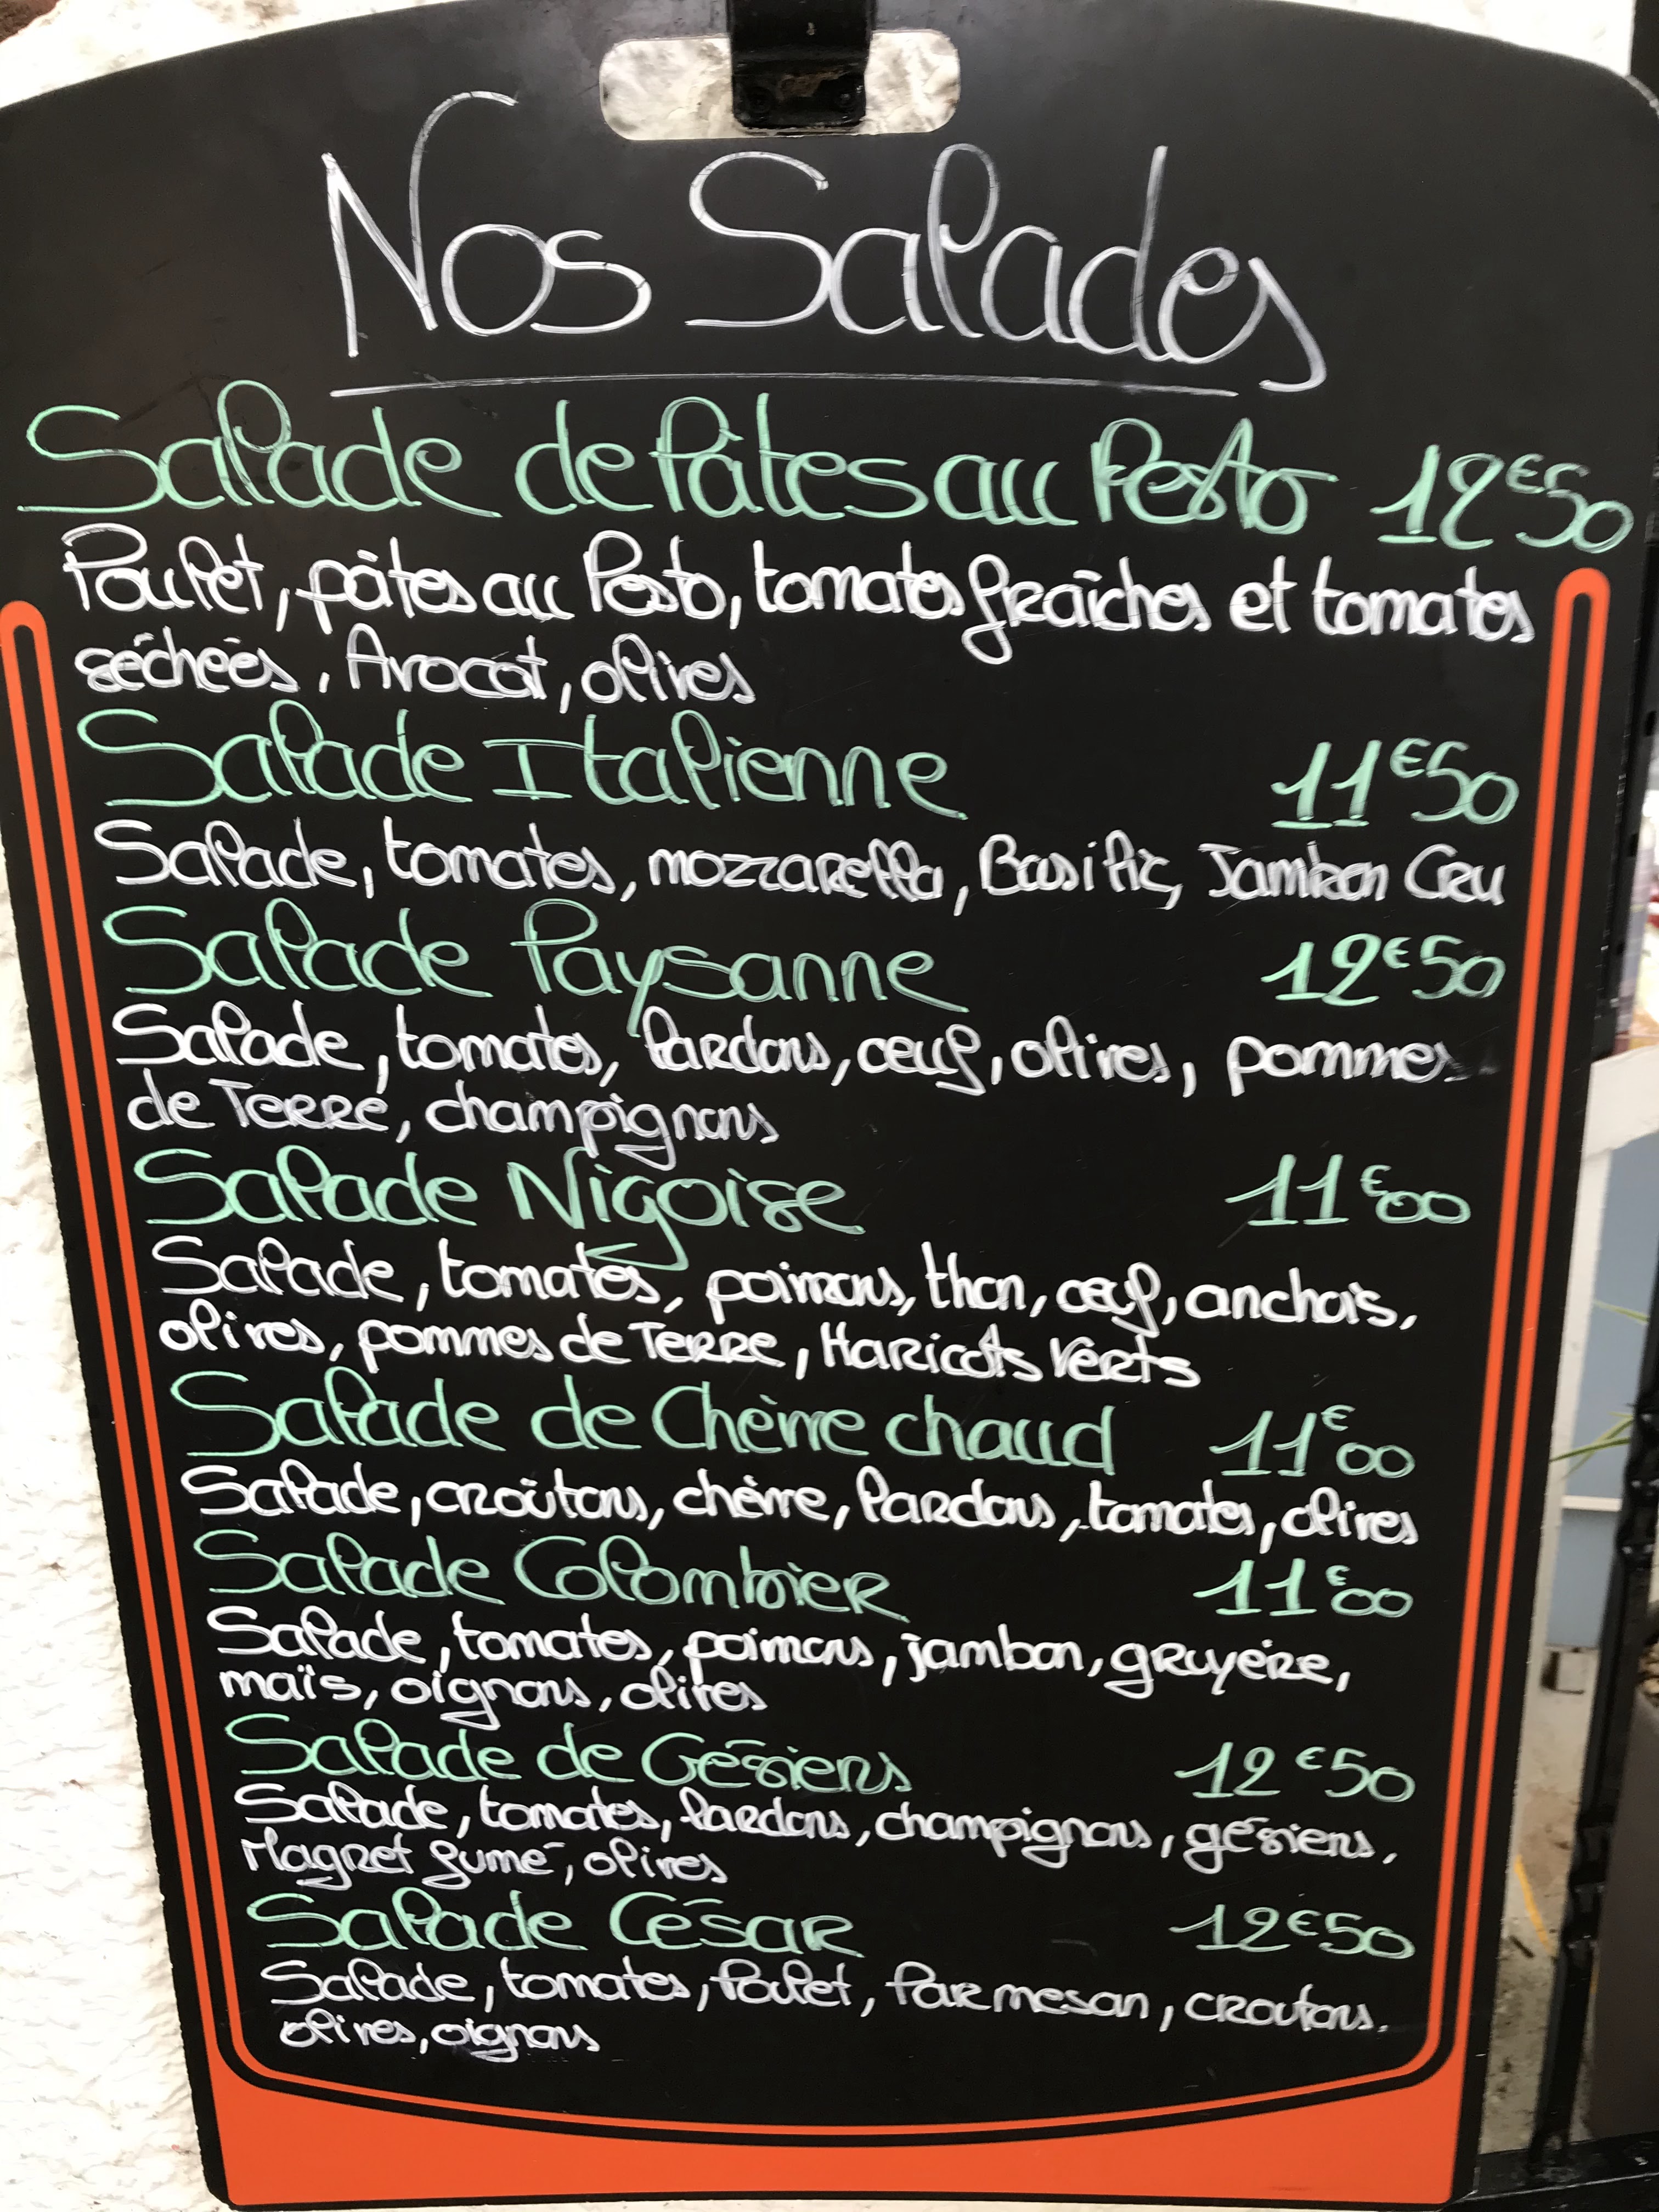 Nos Salades
Salade de Pâtes au Pesto 12€50
Poulet, pâtes au Pesto, tomates fraîches et tomates
séchées, Avocat, olives
Salade Italienne 11€50
Salade, tomates, mozzarella, Basilic, Jambon Cru
Salade Paysanne 12€50
Salade, tomates, lardons, oeuf, olives, pommes
de Terre, champignons
Salade Niçoise 11€00
Salade, tomates, poivrons, thon, oeuf, anchois,
olives, pommes de Terre, Haricots Verts
Salade de Chèvre chaud 11€00
Salade, croûtons, chèvre, lardons, tomates, olives
Salade Colombier 11€00
Salade, tomates, poivrons, jambon, gruyère,
maïs, oignons, olives
Salade de Gésiers 12€50
Salade, tomates, lardons, champignons, gésiers,
Magret fumé, olives
Salade César 12€50
Salade, tomates, Poulet, Parmesan, croutons,
olives, oignons